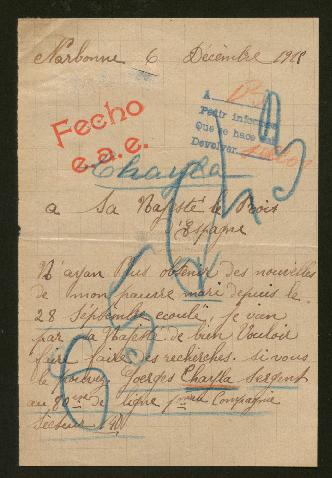 Narbonne 6 Décembre 1915
Fecho
e.a.e.
A
Pedir informes
Que se hace
Devolver
Chayla
a Sa Majesté le Rois
d'Espagne
N'ayan Plus obtenir des nouvelles
de mon pauvre mari depuis le
28 Séptembre ecoulé, je vien
par sa Majesté de bien Vouloir
faire faire des recherches. si vous
le pouvez Goerges Chayla Sergent
au 80eme de ligne 1ere Compagnie
Secteur